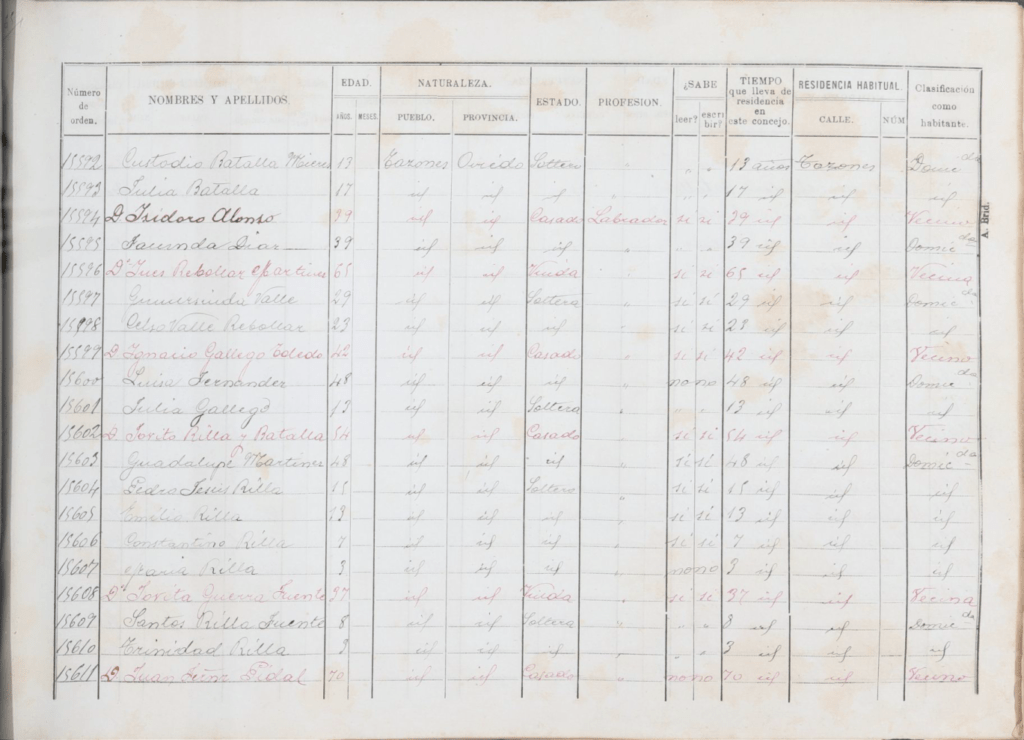 Número de orden. NOMBRES Y APELLIDOS. EDAD. AÑOS. MESES. NATURALEZA. PUEBLO. PROVINCIA. ESTADO. PROFESION. ¿SABE leer? escribir? TIEMPO que lleva de residencia en este concejo. RESIDENCIA HABITUAL. CALLE. NÚM Clasificación como habitante.
15592 Custodio Batalla Mieres 13 Tazones Oviedo Soltero " " " 13 años Tazones Domicda
15593 Julia Batalla 17 id id id " " " 17 id id id
15594 D. Isidoro Alonso 39 id id Casado Labrador si si 39 id id Vecino
15595 Facunda Diaz 39 id id id " " " 39 id id Domicda
15596 Da Ines Rebollar Martines 65 id id Viuda " si si 65 id id Vecina
15597 Gumersinda Valle 29 id id Soltera " si si 29 id id Domicda
15598 Celso Valle Rebollar 23 id id id " si si 23 id id id
15599 D. Ignacio Gallego 42 id id Casado " si si 42 id id Vecino
15600 Luisa Fernández 48 id id id " no no 48 id id Domicda
15601 Julia Gallego 13 id id Soltera " " " 13 id id id
15602 D. Rilla y Batalla 54 id id Casado " si si 54 id id Vecino
15603 Guadalupe Martines 48 id id id " si si 48 id id Domicda
15604 Pedro Jesús Rilla 15 id id Soltero " si si 15 id id id
15605 Emilio Rilla 13 id id id " si si 13 id id id
15606 Constantino Rilla 7 id id id " si si 7 id id id
15607 Maria Rilla 3 id id id " no no 3 id id id
15608 Da Guerra Fuente 37 id id Viuda " si si 37 id id Vecina
15609 Santos Rilla Fuente 8 id id Soltera " " " 8 id id Domicda
15610 Trinidad Rilla 3 id id id " " " 3 id id id
15611 D. Juan Pidal 70 id id Casado " no no 70 id id Vecino
A. Brid.